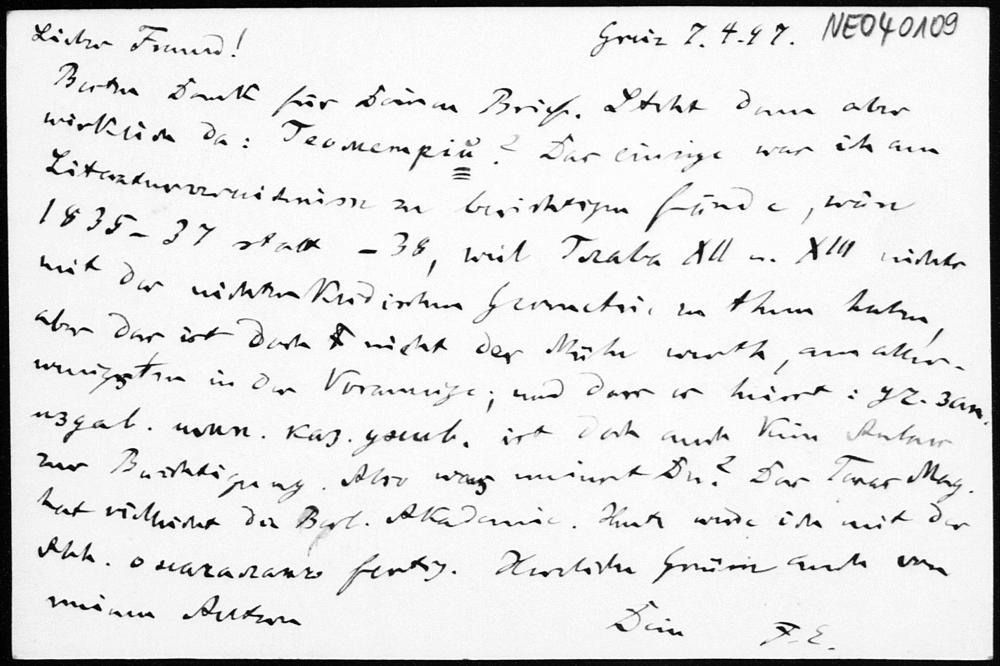 Lieber Freund! Greiz 7.4.97. NE040109
Besten Dank für Deinen Brief. Steht denn aber
wirklich da: Геометрій? Das einzige was ich am
Literaturverzeichnisse zu berichtigen fände, wäre
1835–37 statt –38, weil Teile XII u. XIII nichts
mit der nichteuklidischen Geometrie zu thun haben,
aber das ist doch nicht der Mühe werth, am aller-
wenigsten in der Voranzeige; und dass es heisst: уч. зап.
издав. имп. каз. унив. ist doch auch kein Anlass
zur Berichtigung. Also was meinst Du? Das
hat vielleicht die Berl. Akademie. Heute werde ich mit der
Abh. о началахъ fertig. Herzliche Grüsse auch von
meinen Eltern
Dein F.E.